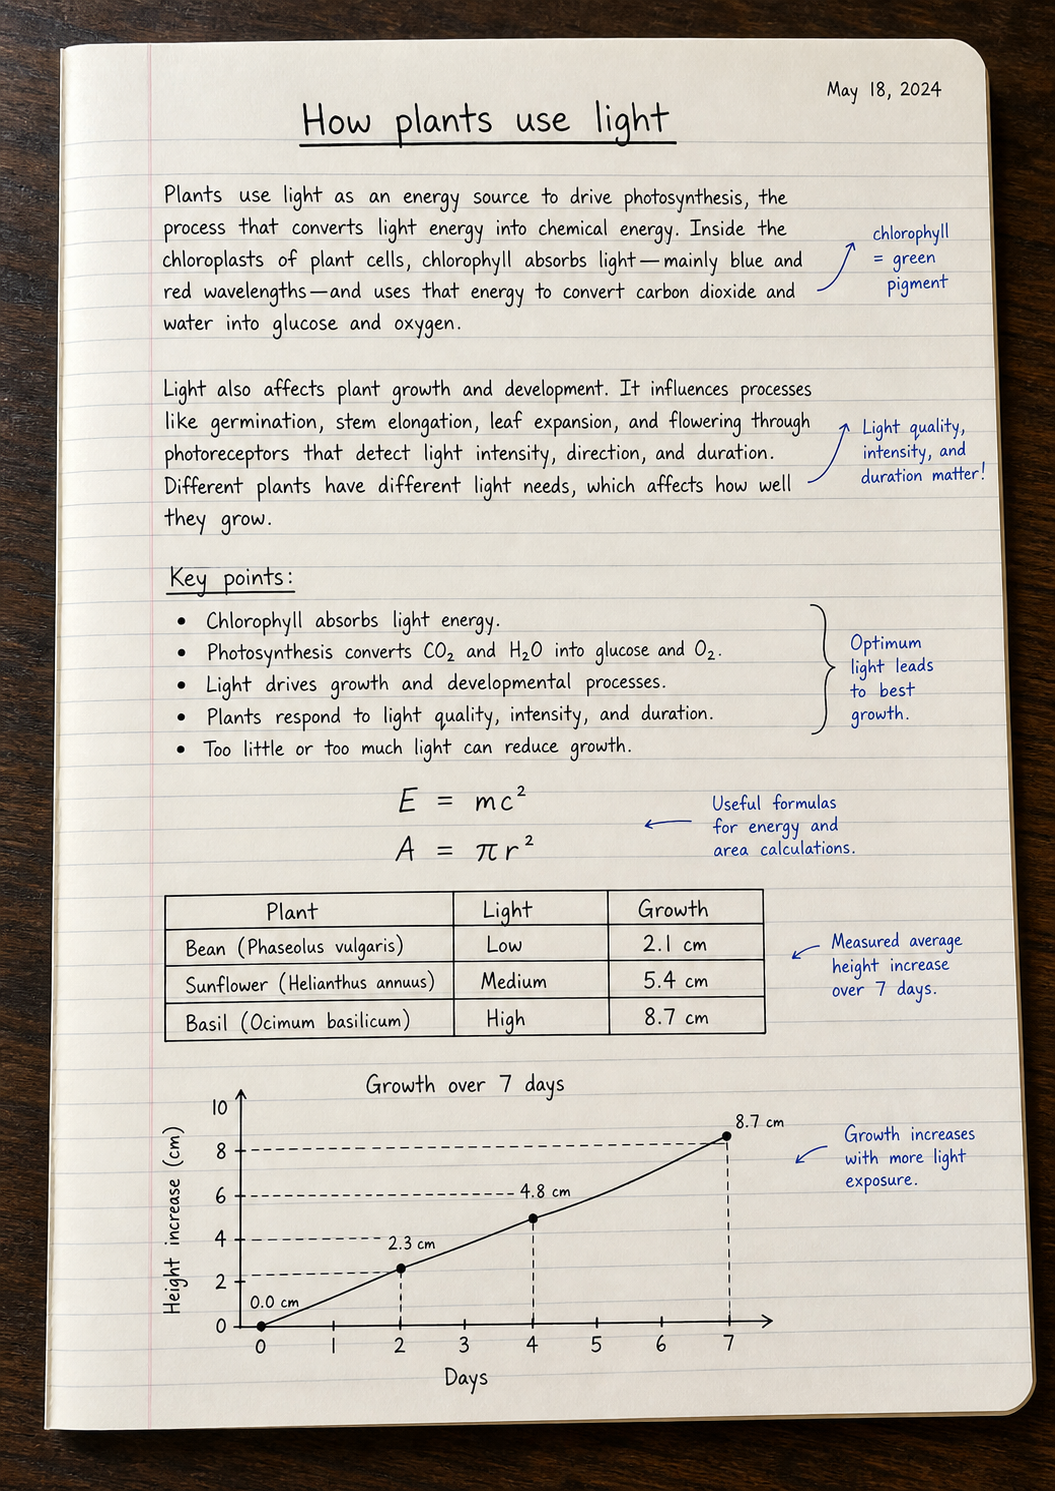 May 18, 2024
How plants use light
Plants use light as an energy source to drive photosynthesis, the
process that converts light energy into chemical energy. Inside the
chloroplasts of plant cells, chlorophyll absorbs light—mainly blue and
red wavelengths—and uses that energy to convert carbon dioxide and
water into glucose and oxygen.
chlorophyll
= green
pigment
Light also affects plant growth and development. It influences processes
like germination, stem elongation, leaf expansion, and flowering through
photoreceptors that detect light intensity, direction, and duration.
Different plants have different light needs, which affects how well
they grow.
Light quality,
intensity, and
duration matter!
Key points:
• Chlorophyll absorbs light energy.
• Photosynthesis converts CO₂ and H₂O into glucose and O₂.
• Light drives growth and developmental processes.
• Plants respond to light quality, intensity, and duration.
• Too little or too much light can reduce growth.
Optimum
light leads
to best
growth.
E = mc²
A = πr²
Useful formulas
for energy and
area calculations.
Plant Light Growth
Bean (Phaseolus vulgaris) Low 2.1 cm
Sunflower (Helianthus annuus) Medium 5.4 cm
Basil (Ocimum basilicum) High 8.7 cm
Measured average
height increase
over 7 days.
Growth over 7 days
Height increase (cm)
10
8
6
4
2
0
0.0 cm
2.3 cm
4.8 cm
8.7 cm
0 1 2 3 4 5 6 7
Days
Growth increases
with more light
exposure.